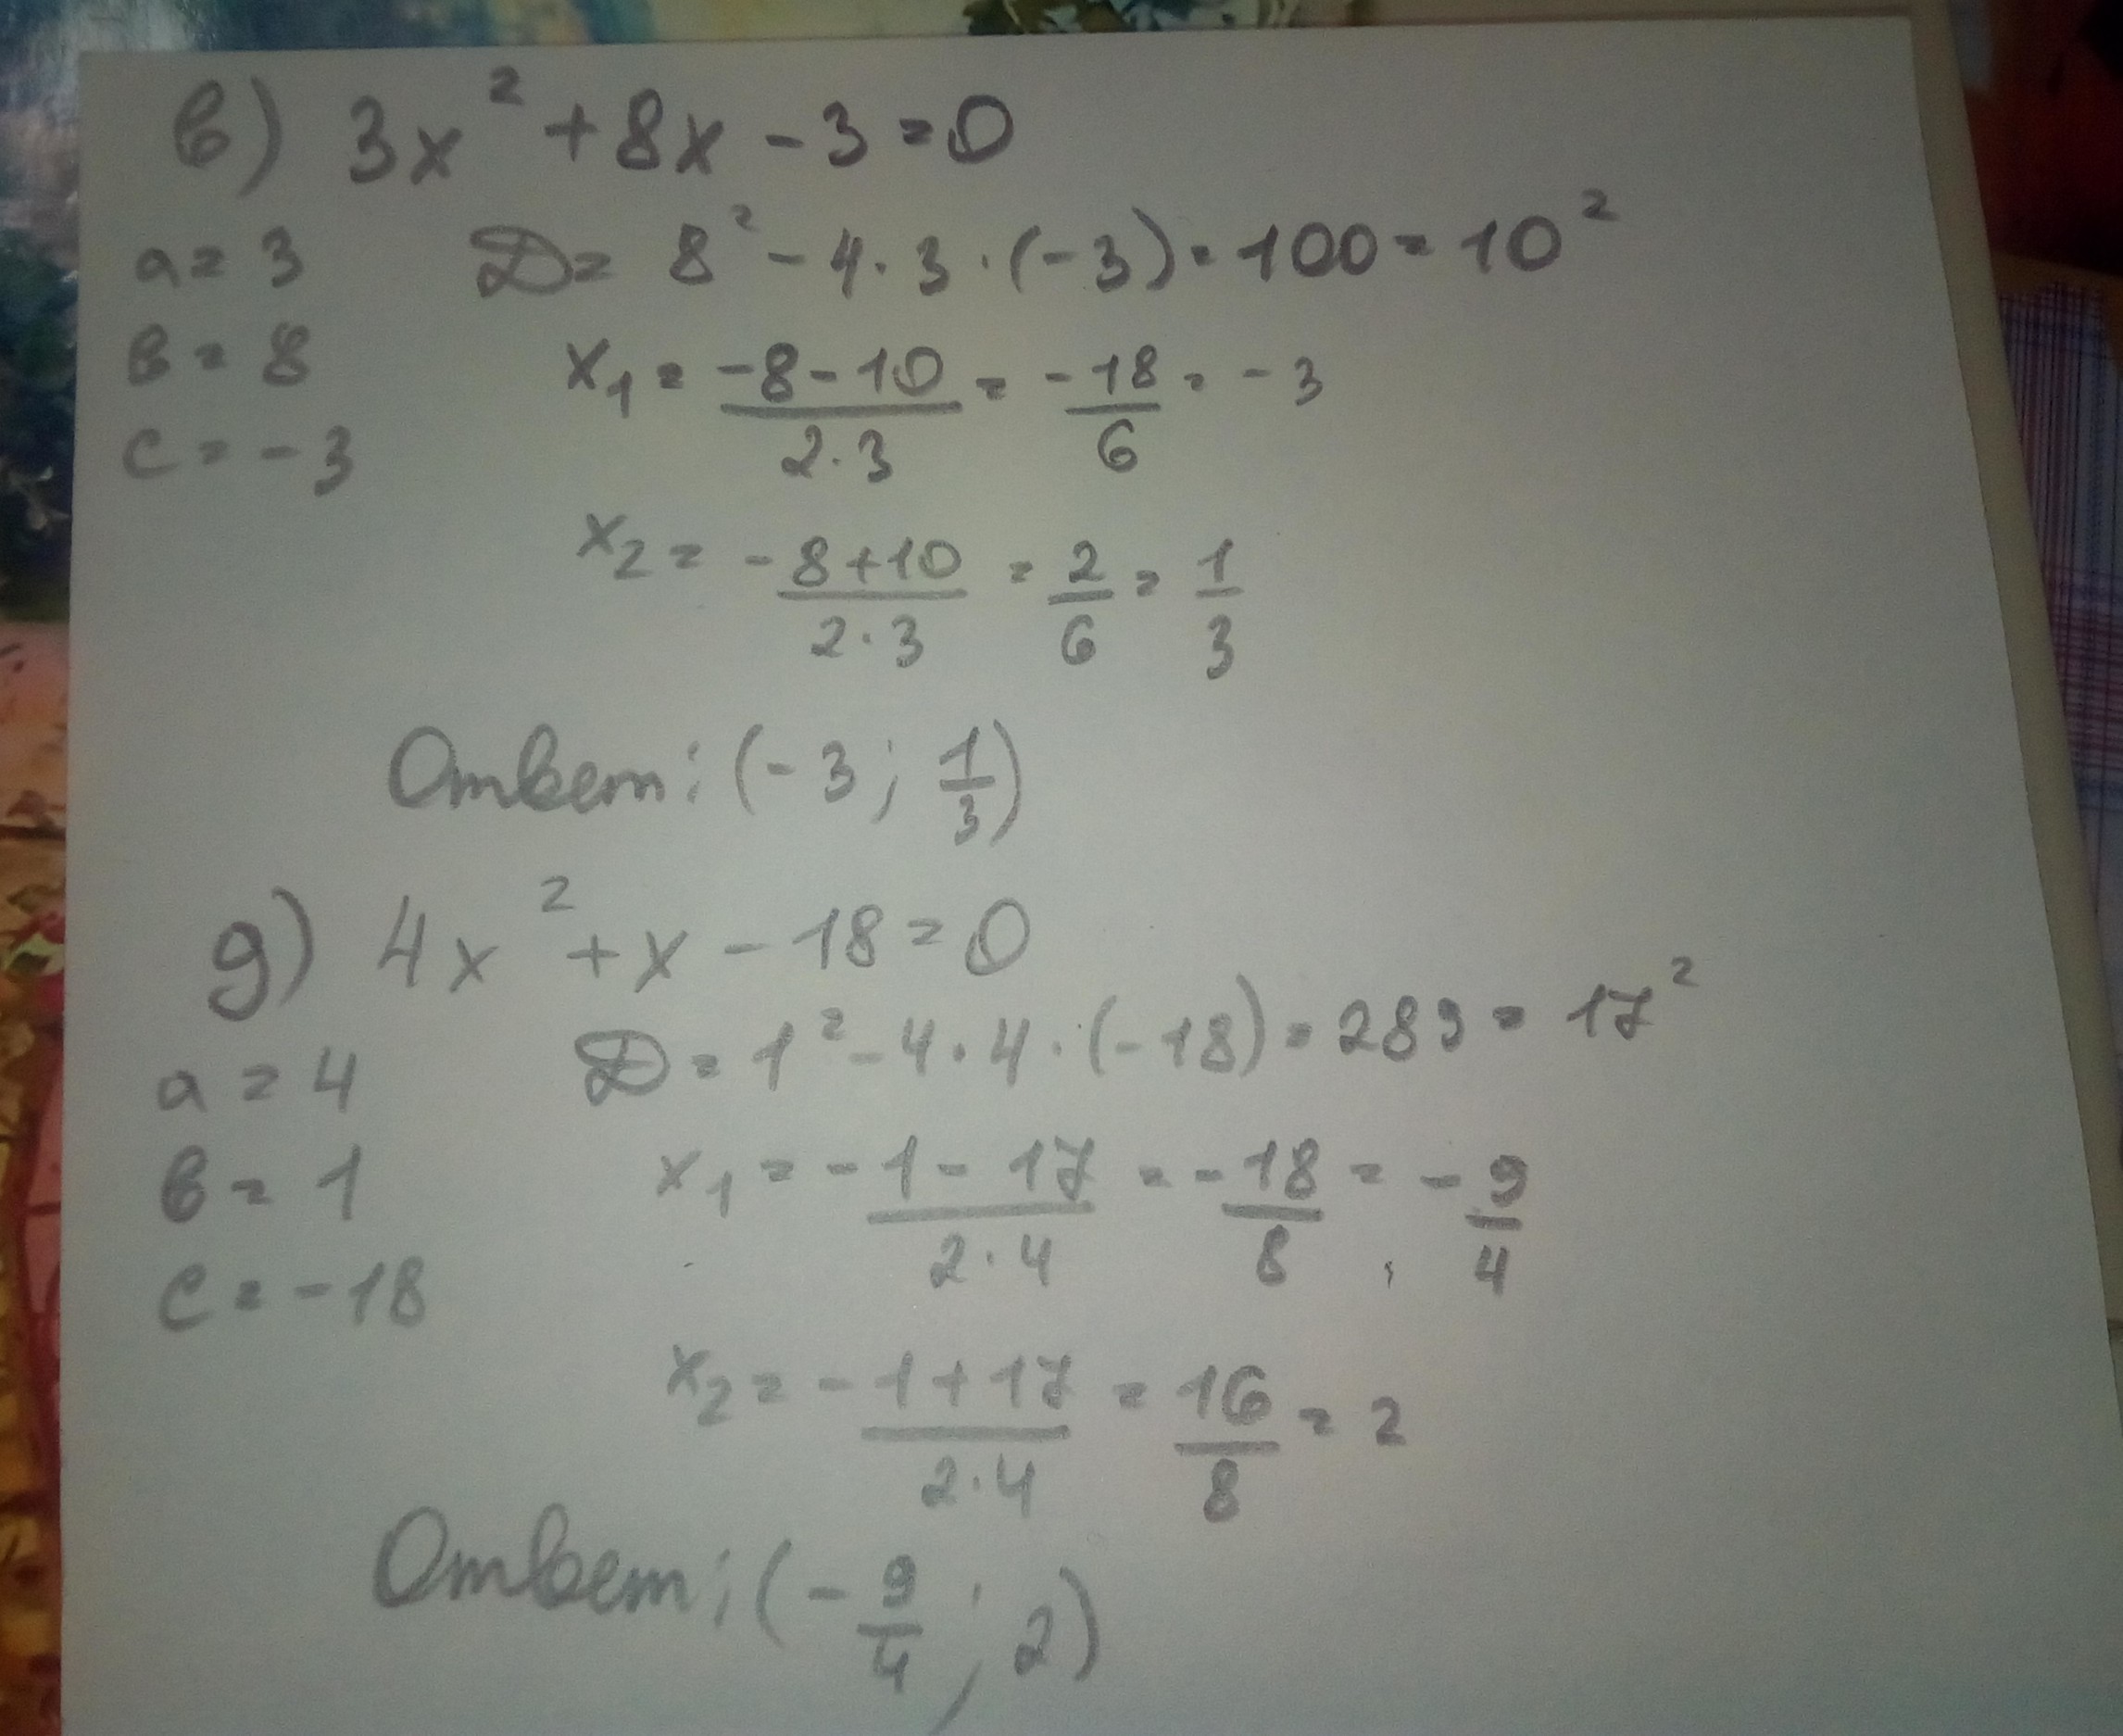 в) 3x² + 8x - 3 = 0
a = 3 D = 8² - 4 · 3 · (-3) = 100 = 10²
в = 8 x₁ = (-8 - 10)/(2 · 3) = -18/6 = -3
c = -3
x₂ = (-8 + 10)/(2 · 3) = 2/6 = 1/3
Ответ: (-3; 1/3)
д) 4x² + x - 18 = 0
a = 4 D = 1² - 4 · 4 · (-18) = 289 = 17²
в = 1 x₁ = (-1 - 17)/(2 · 4) = -18/8 = -9/4
c = -18
x₂ = (-1 + 17)/(2 · 4) = 16/8 = 2
Ответ: (-9/4; 2)